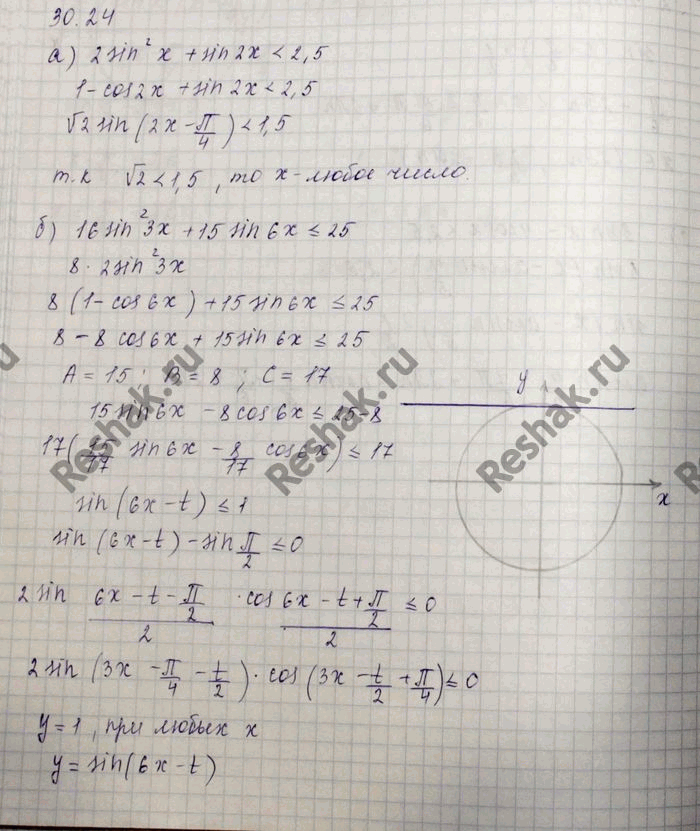 30.24
а) 2sin²x + sin2x < 2,5
1 - cos2x + sin2x < 2,5
√2 sin(2x - π/4) < 1,5
т.к √2 < 1,5, то x - любое число.
б) 16sin²3x + 15sin6x ≤ 25
8 · 2sin²3x
8(1 - cos6x) + 15sin6x ≤ 25
8 - 8cos6x + 15sin6x ≤ 25
A = 15; B = 8; C = 17
15sin6x - 8cos6x ≤ 25-8
17(15/17 sin6x - 8/17 cos6x) ≤ 17
sin(6x - t) ≤ 1
sin(6x - t) - sin π/2 ≤ 0
2sin (6x - t - π/2)/2 · cos (6x - t + π/2)/2 ≤ 0
2sin(3x - π/4 - t/2) · cos(3x - t/2 + π/4) ≤ 0
y = 1, при любых x
y = sin(6x - t)
y
x
Reshak.ru
Reshak.ru
Reshak.ru